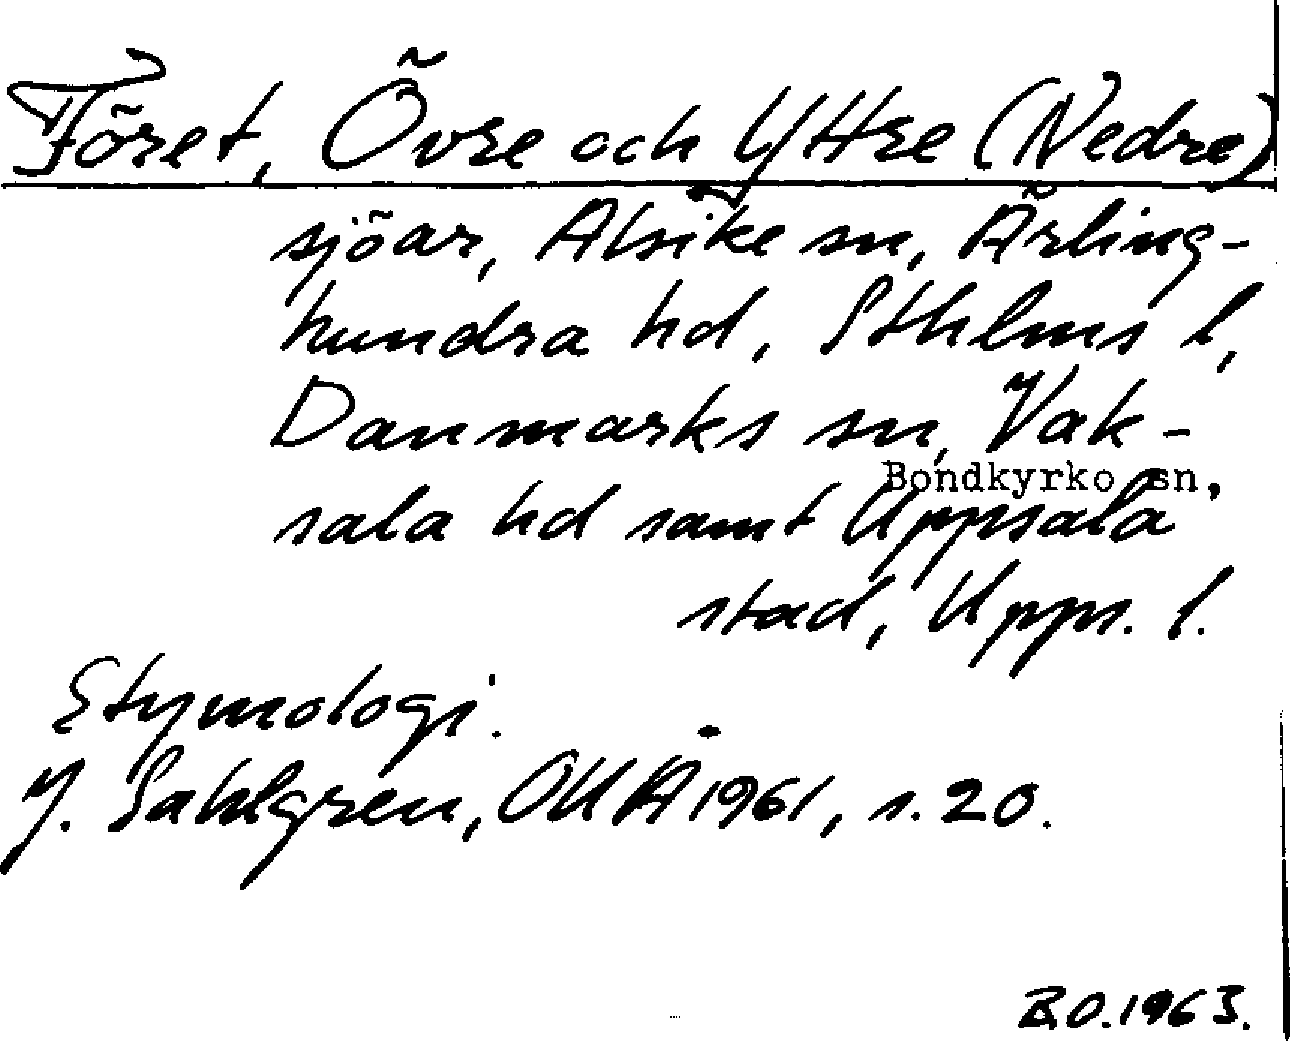 Föret, Övre och Yttre (Nedre)
sjöar, Alsike sn, Ärling-
hundra hd, Sthlms l,
Danmarks sn, Vak-
Bondkyrko sn,
sala hd samt Uppsala
stad, Upps. l.
Etymologi.
J. Sahlgren, OUÅ 1961, s. 20.
B.O. 1963.